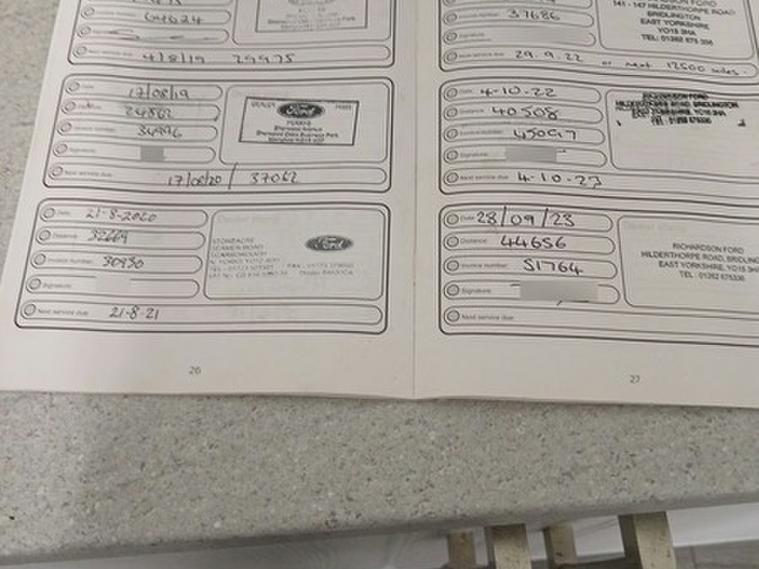 64624
Next service due: 4/8/19 29975
Date: 17/08/19
24562
Invoice number: 34996
Signature:
Next service due: 17/08/20 / 37062
DEALER
Ford
PERRYS
Sherwood Avenue
Sherwood Oaks Business Park
Date: 21-8-2020
Distance: 32669
Invoice number: 30930
Signature:
Next service due: 21-8-21
STONEACRE
SEAMER ROAD
SCARBOROUGH
Ford
26
Invoice number: 37686
Signature:
Next service due: 29.9.22 or next 12500 miles.
141 - 147 HILDERTHORPE ROAD
BRIDLINGTON
EAST YORKSHIRE
YO15 3HA
TEL: 01262 675 336
Date: 4-10-22
Distance: 40508
Invoice number: 45097
Signature:
Next service due: 4-10-23
RICHARDSON FORD
HILDERTHORPE ROAD, BRIDLINGTON
Date: 28/09/23
Distance: 44656
Invoice number: 51764
Signature:
Next service due:
RICHARDSON FORD
HILDERTHORPE ROAD, BRIDLING
EAST YORKSHIRE, YO15 3H
TEL: 01262 675336
27